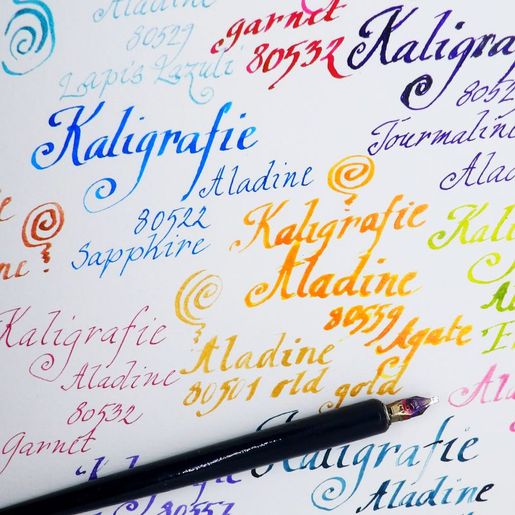 Aladine
80529
Lapis Lazuli
garnet
80532
Kaligra
Tourmaline
Alad
Kaligrafie
Aladine
80522
Sapphire
Kaligrafie
Aladine
80539
Agate
Kali
Kaligrafie
Aladine
80532
Garnet
Aladine
80501 old gold
Kaligrafie
Aladine
80557